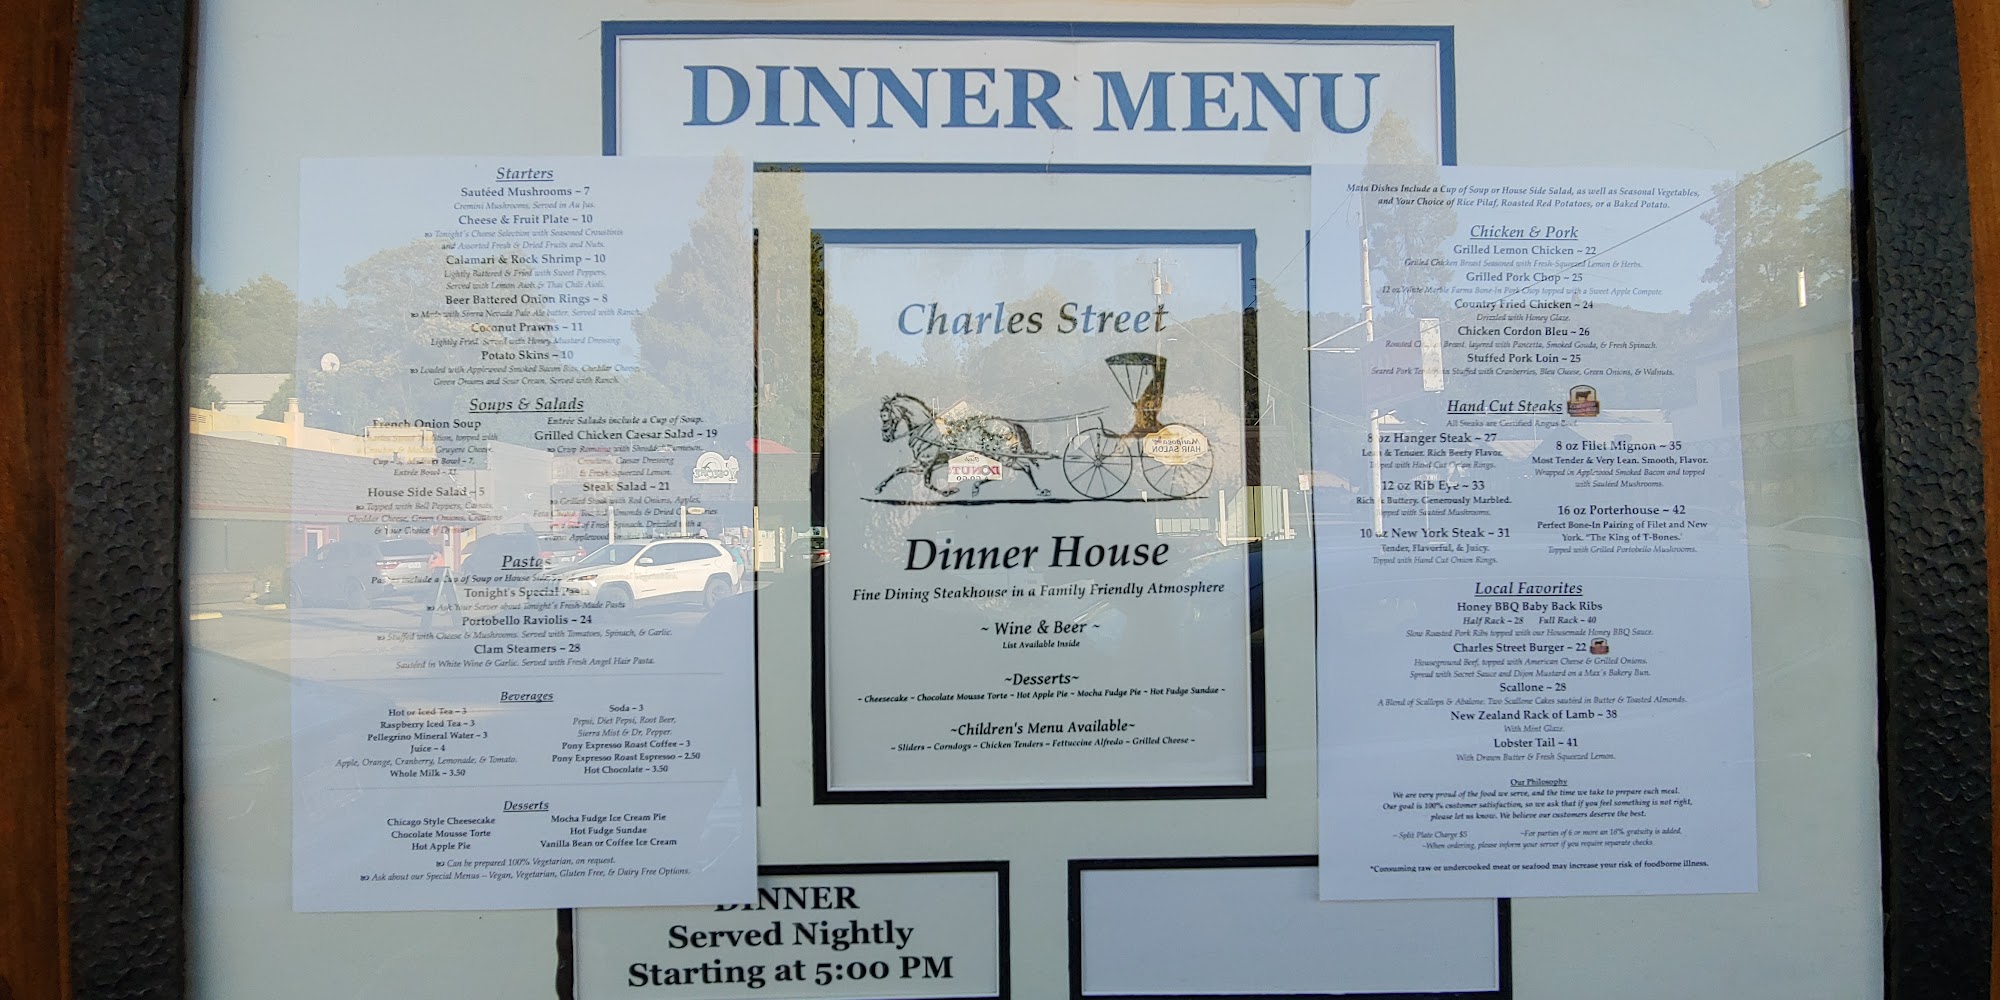 DINNER MENU
Starters
Sautéed Mushrooms ~ 7
Cremini Mushrooms, Served in Au Jus.
Cheese & Fruit Plate ~ 10
Tonight's Cheese Selection with Seasoned Croustinis
and Assorted Fresh & Dried Fruits and Nuts.
Calamari & Rock Shrimp ~ 10
Lightly Battered & Fried with Sweet Peppers,
Served with Lemon Aioli & Thai Chili Aioli.
Beer Battered Onion Rings ~ 8
Made with Sierra Nevada Pale Ale batter. Served with Ranch.
Coconut Prawns ~ 11
Lightly Fried. Served with Honey Mustard Dressing.
Potato Skins ~ 10
Loaded with Applewood Smoked Bacon Bits, Cheddar Cheese,
Green Onions and Sour Cream. Served with Ranch.
Soups & Salads
French Onion Soup
topped with
Gruyere Cheese.
Cup Bowl ~ 7,
Entrée Bowl ~ 12
House Side Salad ~ 5
Topped with Bell Peppers, Carrots,
Cheddar Cheese, Green Onions, Croutons
& Your Choice of Dressing
Entrée Salads include a Cup of Soup.
Grilled Chicken Caesar Salad ~ 19
Crisp Romaine with Shredded Parmesan,
Croutons, Caesar Dressing
& Fresh Squeezed Lemon.
Steak Salad ~ 21
Grilled Steak with Red Onions, Apples,
Feta Cheese, Toasted Almonds & Dried Cranberries
of Fresh Spinach. Drizzled with a
Applewood Smoked
Pastas
Pastas include a Cup of Soup or House Side
Tonight's Special Pasta
Ask Your Server about Tonight's Fresh Made Pasta
Portobello Raviolis ~ 24
Stuffed with Cheese & Mushrooms. Served with Tomatoes, Spinach, & Garlic.
Clam Steamers ~ 28
Sautéed in White Wine & Garlic. Served with Fresh Angel Hair Pasta.
Beverages
Hot or Iced Tea ~ 3
Raspberry Iced Tea ~ 3
Pellegrino Mineral Water ~ 3
Juice ~ 4
Apple, Orange, Cranberry, Lemonade, & Tomato.
Whole Milk ~ 3.50
Soda ~ 3
Pepsi, Diet Pepsi, Root Beer,
Sierra Mist & Dr. Pepper.
Pony Expresso Roast Coffee ~ 3
Pony Expresso Roast Espresso ~ 2.50
Hot Chocolate ~ 3.50
Desserts
Chicago Style Cheesecake
Chocolate Mousse Torte
Hot Apple Pie
Mocha Fudge Ice Cream Pie
Hot Fudge Sundae
Vanilla Bean or Coffee Ice Cream
Can be prepared 100% Vegetarian, on request.
Ask about our Special Menus ~ Vegan, Vegetarian, Gluten Free, & Dairy Free Options.
Charles Street
Dinner House
Fine Dining Steakhouse in a Family Friendly Atmosphere
~ Wine & Beer ~
List Available Inside
~Desserts~
~ Cheesecake ~ Chocolate Mousse Torte ~ Hot Apple Pie ~ Mocha Fudge Pie ~ Hot Fudge Sundae ~
~Children's Menu Available~
~ Sliders ~ Corndogs ~ Chicken Tenders ~ Fettuccine Alfredo ~ Grilled Cheese ~
Main Dishes Include a Cup of Soup or House Side Salad, as well as Seasonal Vegetables,
and Your Choice of Rice Pilaf, Roasted Red Potatoes, or a Baked Potato.
Chicken & Pork
Grilled Lemon Chicken ~ 22
Grilled Chicken Breast Seasoned with Fresh-Squeezed Lemon & Herbs.
Grilled Pork Chop ~ 25
12 oz White Marble Farms Bone-In Pork Chop topped with a Sweet Apple Compote.
Country Fried Chicken ~ 24
Drizzled with Honey Glaze.
Chicken Cordon Bleu ~ 26
Roasted Chicken Breast, layered with Pancetta, Smoked Gouda, & Fresh Spinach.
Stuffed Pork Loin ~ 25
Seared Pork Tenderloin Stuffed with Cranberries, Bleu Cheese, Green Onions, & Walnuts.
Hand Cut Steaks
All Steaks are Certified Angus Beef.
8 oz Hanger Steak ~ 27
Lean & Tender. Rich Beefy Flavor.
Topped with Hand Cut Onion Rings.
12 oz Rib Eye ~ 33
Rich & Buttery. Generously Marbled.
Topped with Sautéed Mushrooms.
10 oz New York Steak ~ 31
Tender, Flavorful, & Juicy.
Topped with Hand Cut Onion Rings.
8 oz Filet Mignon ~ 35
Most Tender & Very Lean. Smooth, Flavor.
Wrapped in Applewood Smoked Bacon and topped
with Sautéed Mushrooms.
16 oz Porterhouse ~ 42
Perfect Bone-In Pairing of Filet and New
York. "The King of T-Bones."
Topped with Grilled Portobello Mushrooms.
Local Favorites
Honey BBQ Baby Back Ribs
Half Rack ~ 28 Full Rack ~ 40
Slow Roasted Pork Ribs topped with our Housemade Honey BBQ Sauce.
Charles Street Burger ~ 22
Houseground Beef, topped with American Cheese & Grilled Onions.
Spread with Secret Sauce and Dijon Mustard on a Max's Bakery Bun.
Scallone ~ 28
A Blend of Scallops & Abalone. Two Scallone Cakes sautéed in Butter & Toasted Almonds.
New Zealand Rack of Lamb ~ 38
With Mint Glaze.
Lobster Tail ~ 41
With Drawn Butter & Fresh Squeezed Lemon.
Our Philosophy
We are very proud of the food we serve, and the time we take to prepare each meal.
Our goal is 100% customer satisfaction, so we ask that if you feel something is not right,
please let us know. We believe our customers deserve the best.
~ Split Plate Charge $5 ~For parties of 6 or more an 18% gratuity is added.
~When ordering, please inform your server if you require separate checks.
*Consuming raw or undercooked meat or seafood may increase your risk of foodborne illness.
DINNER
Served Nightly
Starting at 5:00 PM